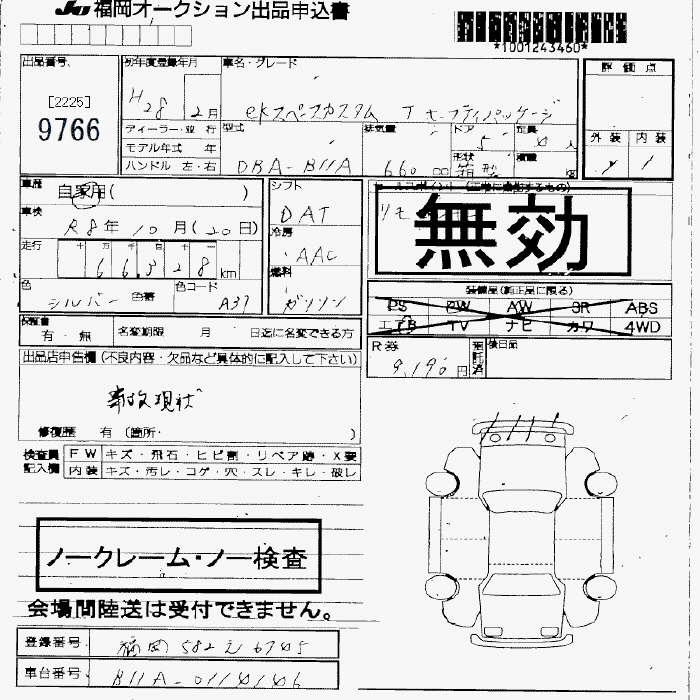 JU 福岡オークション出品申込書
*1001243460*
出品番号 初年度登録年月 車名・グレード 評価点
[2225]
9766
H28 2月 eKスペースカスタム T セーフティパッケージ
ディーラー・並行 型式 排気量 ドア 定員 外装 内装
モデル年式 年 5 4人
ハンドル 左・右 DBA-B11A 660 cc 形状 箱型 積載
車歴 自家用( ) シフト DAT セールスポイント(工場に
リモ
無効
車検 R8年10月(20日) 冷房 AAC
走行 十 万 千 百 十 一
66328 km 燃料 ガソリン
色 シルバー 色番 色コード A37
装備品(純正品に限る)
PS PW AW SR ABS
エアB TV ナビ カワ 4WD
保証書 有・無 名変期限 月 日迄に名変できる方
R券 9,190円 預託済 後日品
出品店申告欄(不良内容・欠品など具体的に記入して下さい)
事故現状
修復歴 有 (箇所・ )
検査員記入欄 FW キズ・飛石・ヒビ割・リペア跡・X要
内装 キズ・汚レ・コゲ・穴・スレ・キレ・破レ
ノークレーム・ノー検査
会場間陸送は受付できません。
登録番号 福岡 582 え 6705
車台番号 B11A-0114146